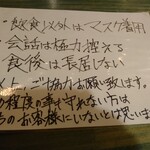 ・飲食以外はマスク着用
・会話は極力控える
・食後は長居しない
ご協力お願い致します。
の程度の事も守れない方は
のお客様にいないとは思いますが